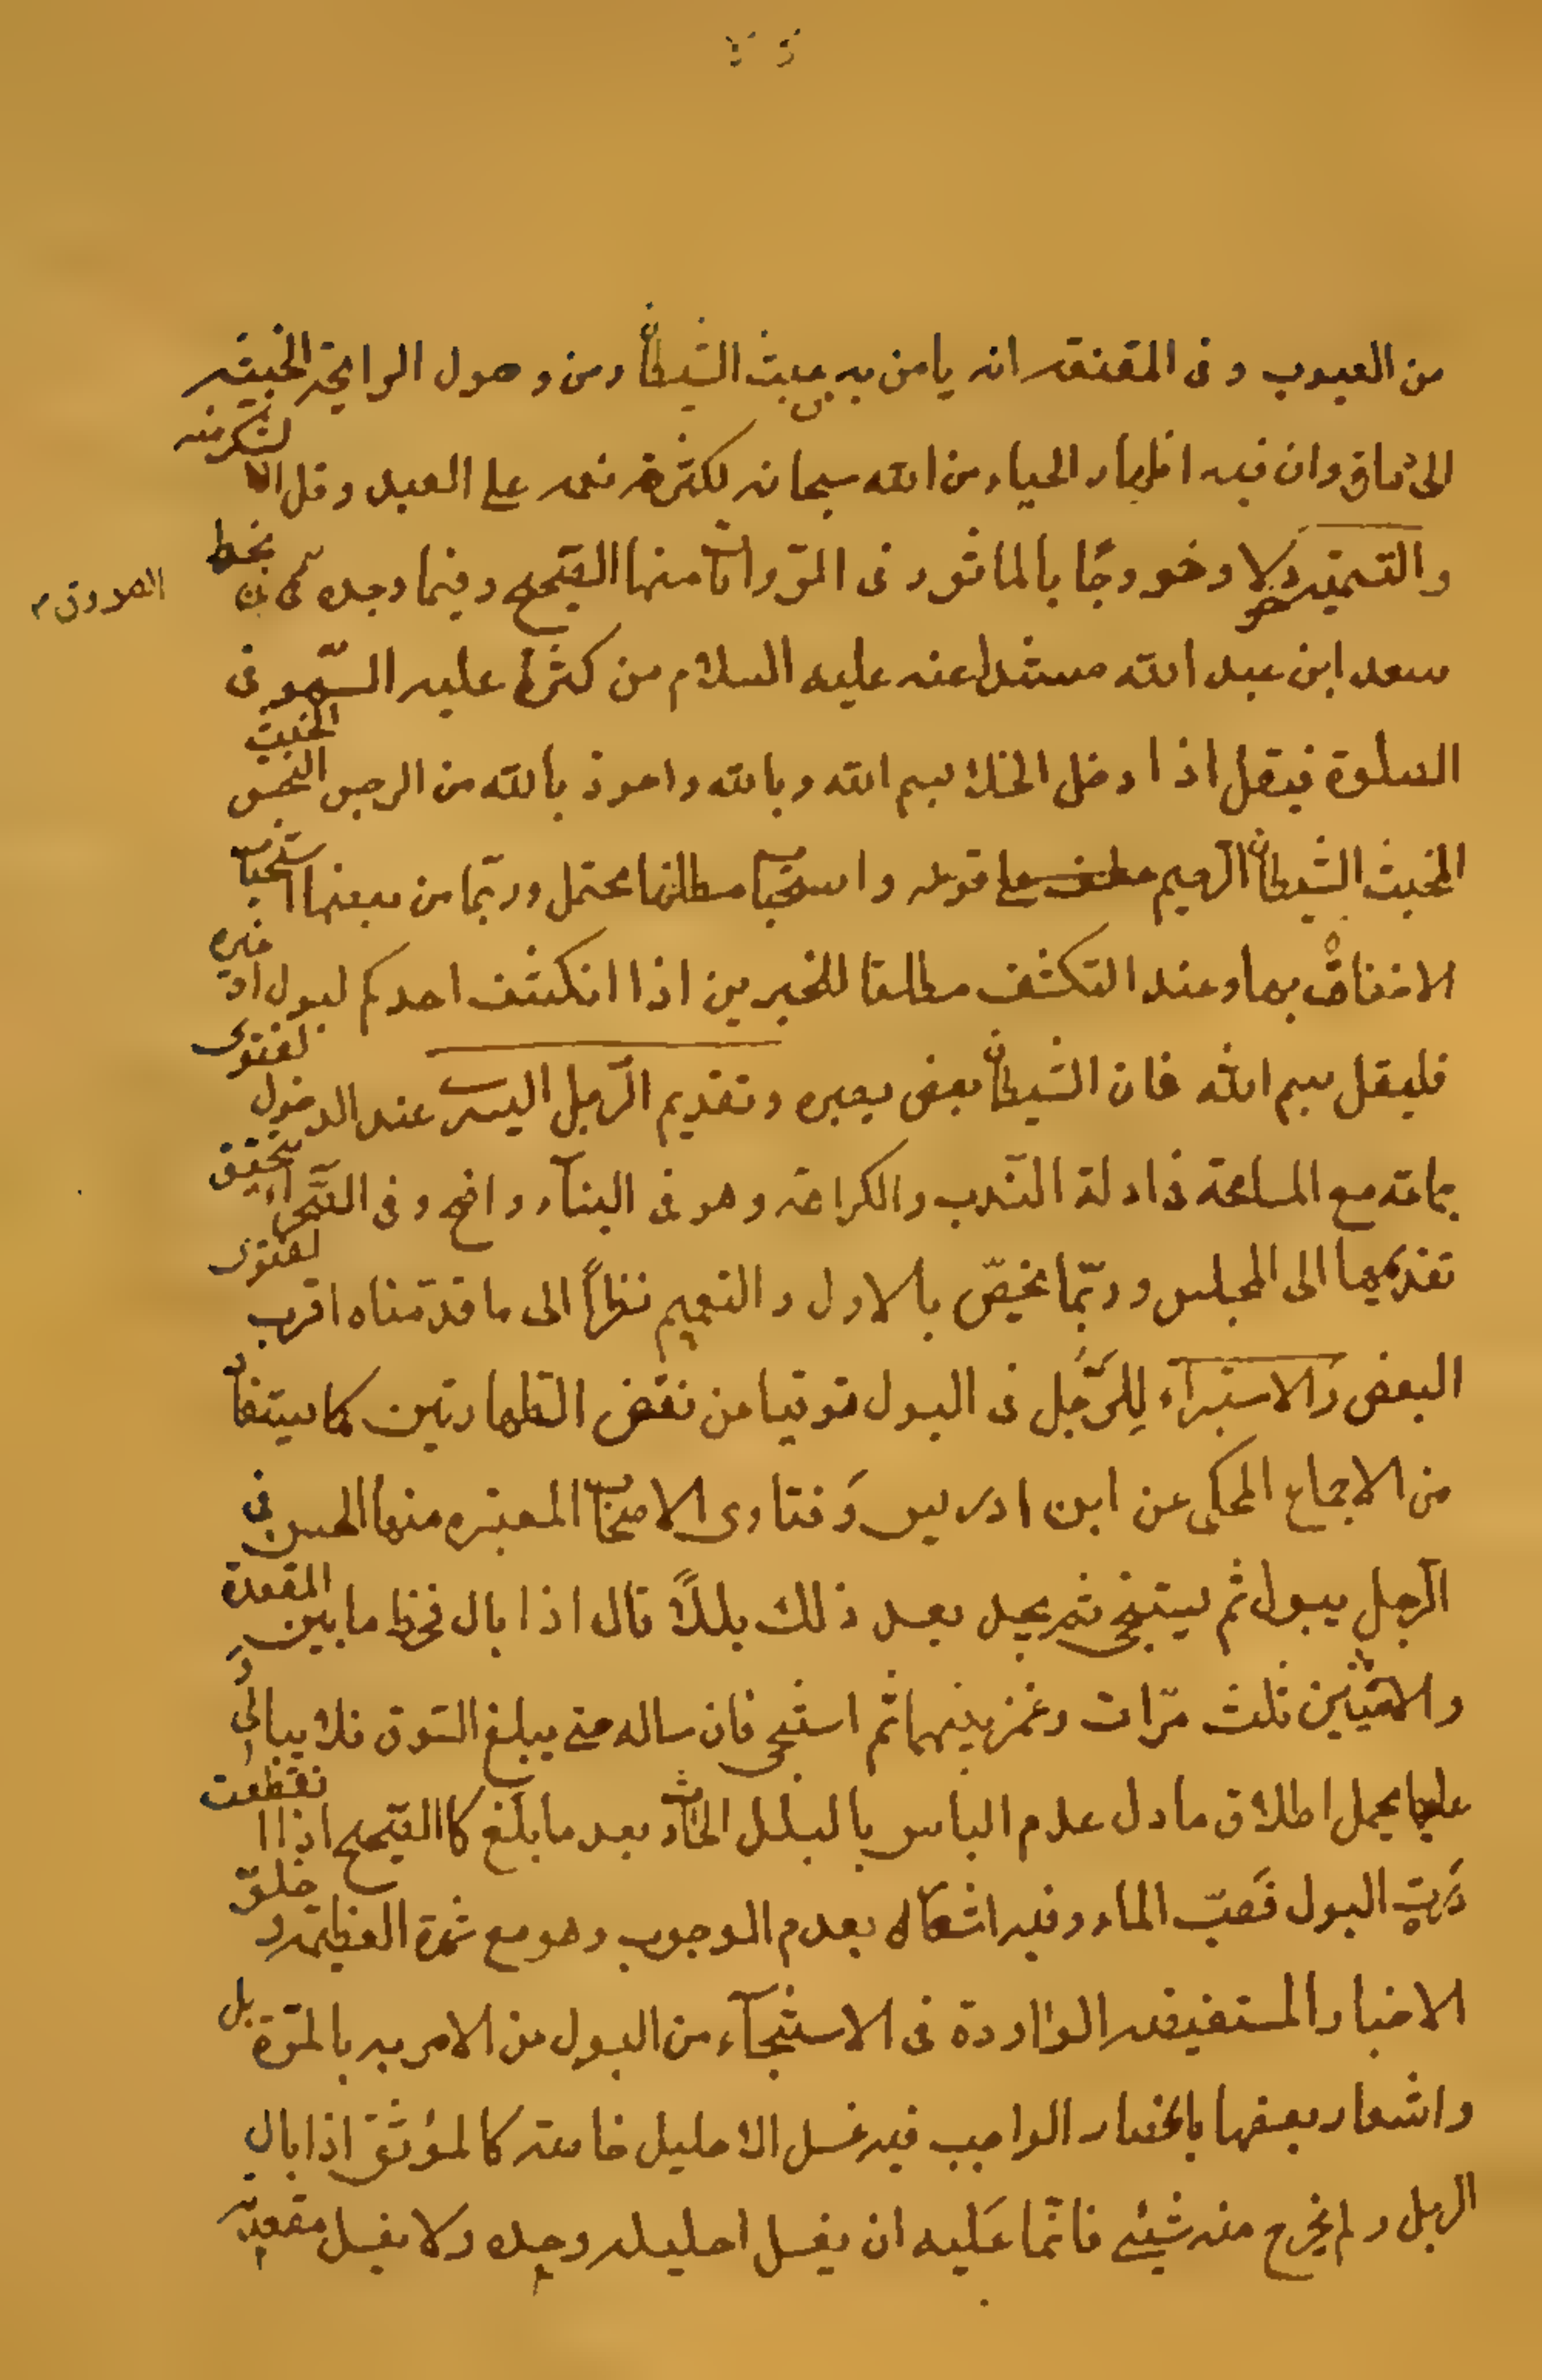 من العيوب وفى المقنعه انه يامن به عبث الشيطان ومن وصول الرايحة الخبيثه
الى دماغه وان فيه اظهار الحياء من الله سبحانه لكثرة نعمه على العبد وقلة الشكر منه
والتسميه دخولا وخروجًا بالماثور فى المرويات منها الصحيح وفيما وجده بخط
الصدوق
سعد ابن عبد الله مسندا عنه عليه السلام من كثر عليه السّهو فى
الصلوة فيقل اذا دخل الخلا بسم الله وبالله واعوذ بالله من الرجس النجس الخبيث
المخبث الشيطان الرجيم على قوله واستحباب مطلقها محتمل وربّما من بعضها استحباب
الاخفات بها وعند التكشف مطلقا للخبرين اذا انكشف احدكم لبول او غيره
فليقل بسم الله فان الشيطان يغض بصره وتقديم الرّجل اليسرى عند الدخول لفتوى
جماعة مع المسامحة فى ادلة النّدب والكراهة وهو فى البناء واضح وفى الصّحراء يتحقق
تقديمها الى المجلس وربّما يخصّ بالاول والتعميم نظراً الى ما قدمناه اقرب لفتوى
البعض وَالاستبراء لِلرَّجُل فى البول توقيا من نقض الطهارتين كما يستفاد
من الاجماع المحكى عن ابن ادريس وَفتاوى الاصحاب المعتبره منها الحسن فى
الرّجل يبول ثم يستنجى ثم يجد بعد ذلك بللاً قال اذا بال فخرط ما بين المقعدة
والانثيين ثلث مرّات وغمز بينهما ثم استنجى فان سال حتى يبلغ السّوق فلا يبالى و
عليها يحمل اطلاق ما دل عدم الباس بالبلل الحادث بعد ما بلغ كالصّحيح اذا انقطعت
دَرّة البول فَصبّ الماء وفيه اشعار له بعدم الوجوب وهو مع شهرة العظيمة و خلوّ
الاخبار المستفيضه الواردة فى الاستنجآء من البول من الامر به بالمرّة بل
واشعار بعضها بانحصار الواجب فيه غسل الاحليل خاصته كالمؤثق اذا بال
الرجل ولم يخرج منه شيئى فانّما عَليه ان يغسل احليله وحده ولا يغسل مقعدته